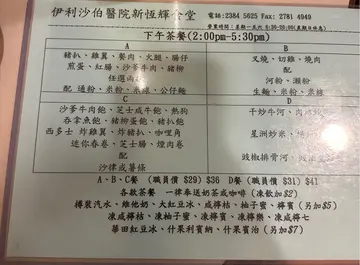 伊利沙伯醫院新恆輝食堂
電話:2384 5625 Fax: 2781 4949
下午茶餐(2:00pm-5:30pm)
A
豬扒、雞翼、餐肉、火腿、腸仔
煎蛋、紅腸、沙爹牛肉、豬柳
任選兩
配 通粉、米粉、米線、公仔麵
B
叉燒、切雞、燒肉
配
河粉、瀨粉
生麵、米粉、
C
沙爹牛肉飽、芝士咸牛飽、熱狗
吞拿魚飽、豬柳蛋飽、豬扒飽
西多士 炸雞翼、炸豬扒、咖喱角
迷你春卷、芝士腸、煙肉卷
配
沙律或薯條
D
干炒牛河、
星洲炒米、
豉椒排骨河、
A、B、C餐 (職員價 $29) $36 D餐 (職員價 $31) $41
各款茶餐 一律奉送奶茶或咖啡 (凍飲加$2)
樽裝汽水、維他奶、大紅豆冰、咸檸桔、柚子蜜、檸賓 (另加$5)
凍咸檸桔、凍柚子蜜、凍檸賓、凍檸樂、凍咸檸七
華田紅豆冰、什果利賓納、什果賓治 (另加$7)